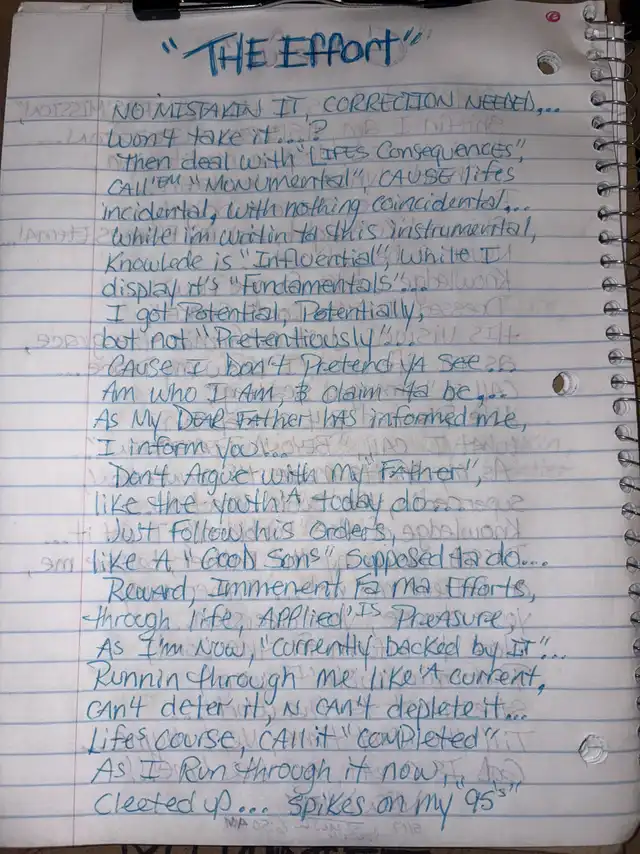 "THE Effort"
NO MISTAKIN IT, CORRECTION NEEDED,...
Won't take it....?
then deal with "LIFES Consequences",
CAll 'EM "Monumental", CAUSE lifes
incidental, with nothing coincidental...
While i'm writin to this instrumental,
Knowlede is "Influential", while I
display it's "Fundamentals"...
I got Potential, Potentially,
but not "Pretentiously"...
CAUSE I Don't Pretend YA see...
Am who I Am, & claim ta be,...
As My DEAR FAther hAs informed me,
I inform you...
Don't Argue with my "FAther",
like the youth A today do...
Just Follow his Orders,
like A "Good Sons" Supposed ta do...
Reward, Immenent Fa ma Efforts,
through life, Applied IS Preasure,
As I'm Now, "Currently backed by IT"...
Runnin through me like A current,
CAn't deter it, N CAn't deplete it...
Lifes Course, CAll it "Completed"
As I Run through it now,,
Cleeted up... Spikes on my "95's"